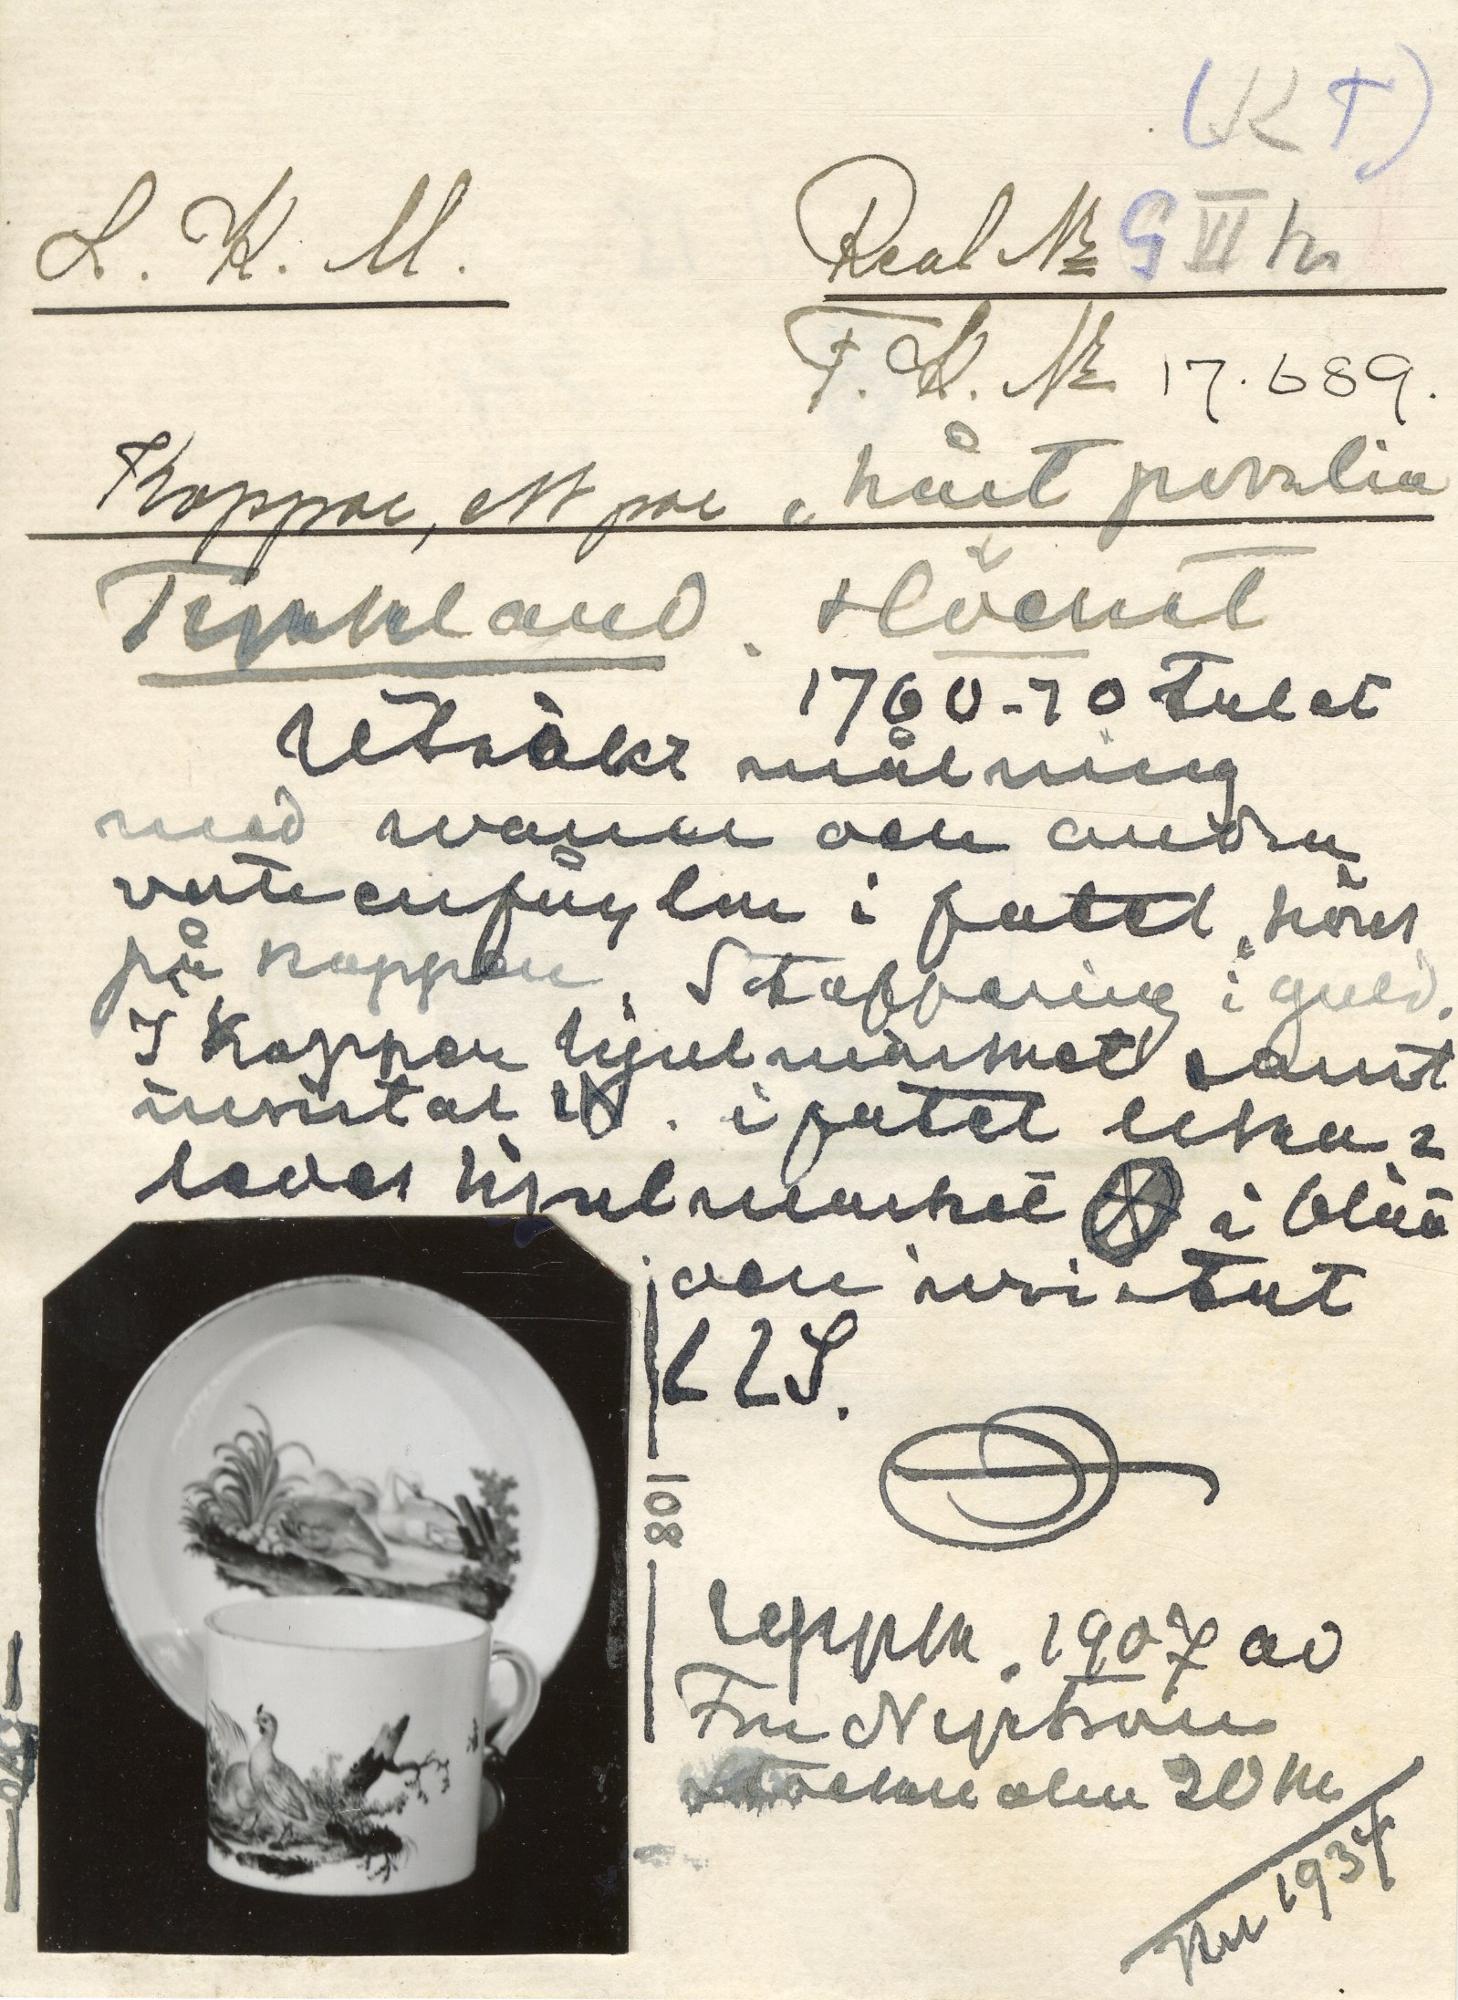 (K T)
L. K. M.
Real № G VI h
F. K. № 17.689.
Koppar, ett par, hårt porslin
Tyskland. Höchst
1760-70 talet
Utsökt målning
med svanar och andra
vattenfåglar i fatet, höns
på koppen. Staffering i guld.
I koppen hjulmärket samt
inristat N. i fatet lika-
ledes hjulmärket i blått
och inristat
L L S.
108
Uppk. 1907 av
Fru Nyström
Stockholm 20 Kr
1934